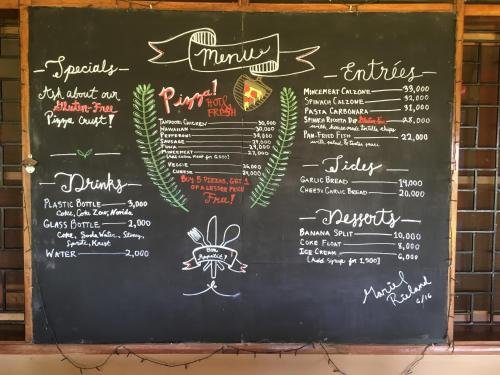 Menu
-Specials-
Ask about our
Gluten-Free
Pizza crust!
-Drinks-
Plastic Bottle 3,000
Coke, Coke Zero, Novida
Glass Bottle 2,000
Coke, Soda Water, Stoney,
Sprite, Krest
Water 2,000
Pizza!
Hot &
Fresh
Tandoori Chicken 30,000
Hawaiian 30,000
Pepperoni 30,000
Sausage 29,000
Tuna
Mincemeat 27,000
Veggie 26,000
Cheese 24,000
Buy 5 Pizzas, Get 1
of a lesser price
Free!
Bon
Appetit!
-Entrées-
Mincemeat Calzone 33,000
Spinach Calzone 32,000
Pasta Carbonara 31,000
Spinach Ricotta Dip Gluten Free 28,000
with house-made tortilla chips
Pan-Fried Fish 22,000
with salad & tartar sauce
-Sides-
Garlic Bread 14,000
Cheesy Garlic Bread 20,000
-Desserts-
Banana Split 10,000
Coke Float 8,000
Ice Cream 6,000
[Add syrup for 1,500]
6/16